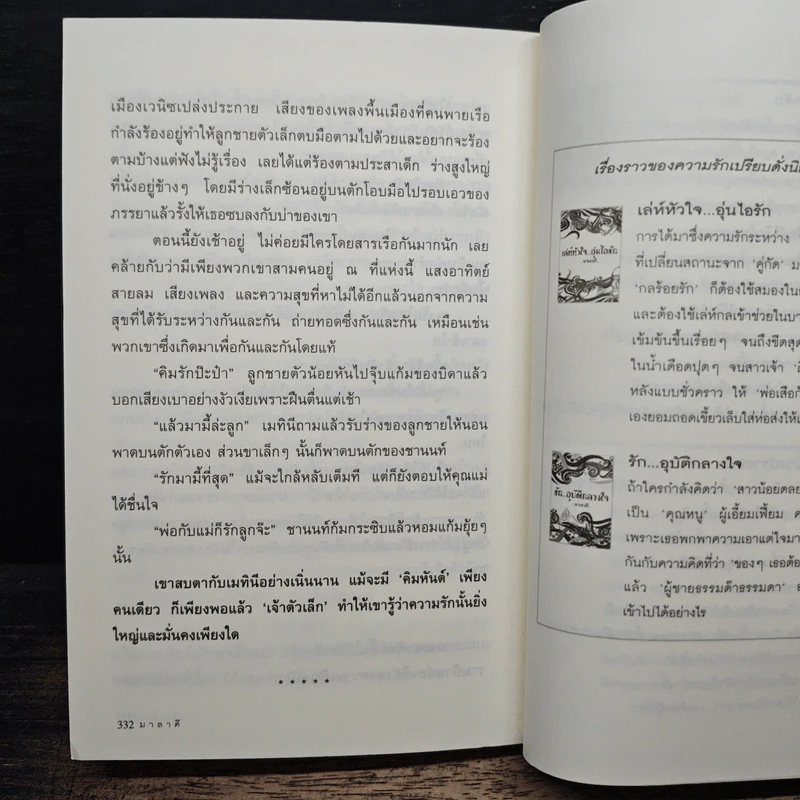 เมืองเวนิซเปล่งประกาย เสียงของเพลงพื้นเมืองที่คนพายเรือ
กำลังร้องอยู่ทำให้ลูกชายตัวเล็กตบมือตามไปด้วยและอยากจะร้อง
ตามบ้างแต่ฟังไม่รู้เรื่อง เลยได้แต่ร้องตามประสาเด็ก ร่างสูงใหญ่
ที่นั่งอยู่ข้างๆ โดยมีร่างเล็กซ้อนอยู่บนตักโอบมือไปรอบเอวของ
ภรรยาแล้วรั้งให้เธอซบลงกับบ่าของเขา
ตอนนี้ยังเช้าอยู่ ไม่ค่อยมีใครโดยสารเรือกันมากนัก เลย
คล้ายกับว่ามีเพียงพวกเขาสามคนอยู่ ณ ที่แห่งนี้ แสงอาทิตย์
สายลม เสียงเพลง และความสุขที่หาไม่ได้อีกแล้วนอกจากความ
สุขที่ได้รับระหว่างกันและกัน ถ่ายทอดซึ่งกันและกัน เหมือนเช่น
พวกเขาซึ่งเกิดมาเพื่อกันและกันโดยแท้
“คิมรักป๊ะป๋า” ลูกชายตัวน้อยหันไปจุ๊บแก้มของบิดาแล้ว
บอกเสียงเบาอย่างงัวเงียเพราะฝืนตื่นแต่เช้า
“แล้วมามี้ล่ะลูก” เมทินีถามแล้วรับร่างของลูกชายให้นอน
พาดบนตักตัวเอง ส่วนขาเล็กๆ นั้นก็พาดบนตักของชานนท์
“รักมามี้ที่สุด” แม้จะใกล้หลับเต็มที แต่ก็ยังตอบให้คุณแม่
ได้ชื่นใจ
“พ่อกับแม่ก็รักลูกจ๊ะ” ชานนท์ก้มกระซิบแล้วหอมแก้มยุ้ยๆ
นั้น
เขาสบตากับเมทินีอย่างเนิ่นนาน แม้จะมี ‘คิมหันต์’ เพียง
คนเดียว ก็เพียงพอแล้ว ‘เจ้าตัวเล็ก’ ทำให้เขารู้ว่าความรักนั้นยิ่ง
ใหญ่และมั่นคงเพียงใด
*****
332 มาลาคี
เรื่องราวของความรักเปรียบดั่งนิ
เล่ห์หัวใจ...อุ่นไอรัก
การได้มาซึ่งความรักระหว่าง
ที่เปลี่ยนสถานะจาก ‘คู่กัด’ ม
‘กลร้อยรัก’ ก็ต้องใช้สมองใน
และต้องใช้เล่ห์กลเข้าช่วยในบา
เข้มข้นขึ้นเรื่อยๆ จนถึงขีดสุด
ในน้ำเดือดปุดๆ จนสาวเจ้า
หลังแบบชั่วคราว ให้ ‘พ่อเสือ
เองยอมถอดเขี้ยวเล็บใส่ห่อส่งให้
เล่ห์หัวใจ..อุ่นไอรัก
รัก...อุบัติกลางใจ
ถ้าใครกำลังคิดว่า ‘สาวน้อยตลย
เป็น ‘คุณหนู’ ผู้เอี้ยมเฟี้ยม ค
เพราะเธอพกพาความเอาแต่ใจมา
กันกับความคิดที่ว่า ‘ของๆ เธอต้อ
แล้ว ‘ผู้ชายธรรมด๊าธรรมดา’
เข้าไปได้อย่างไร
รัก..อุบัติกลางใจ